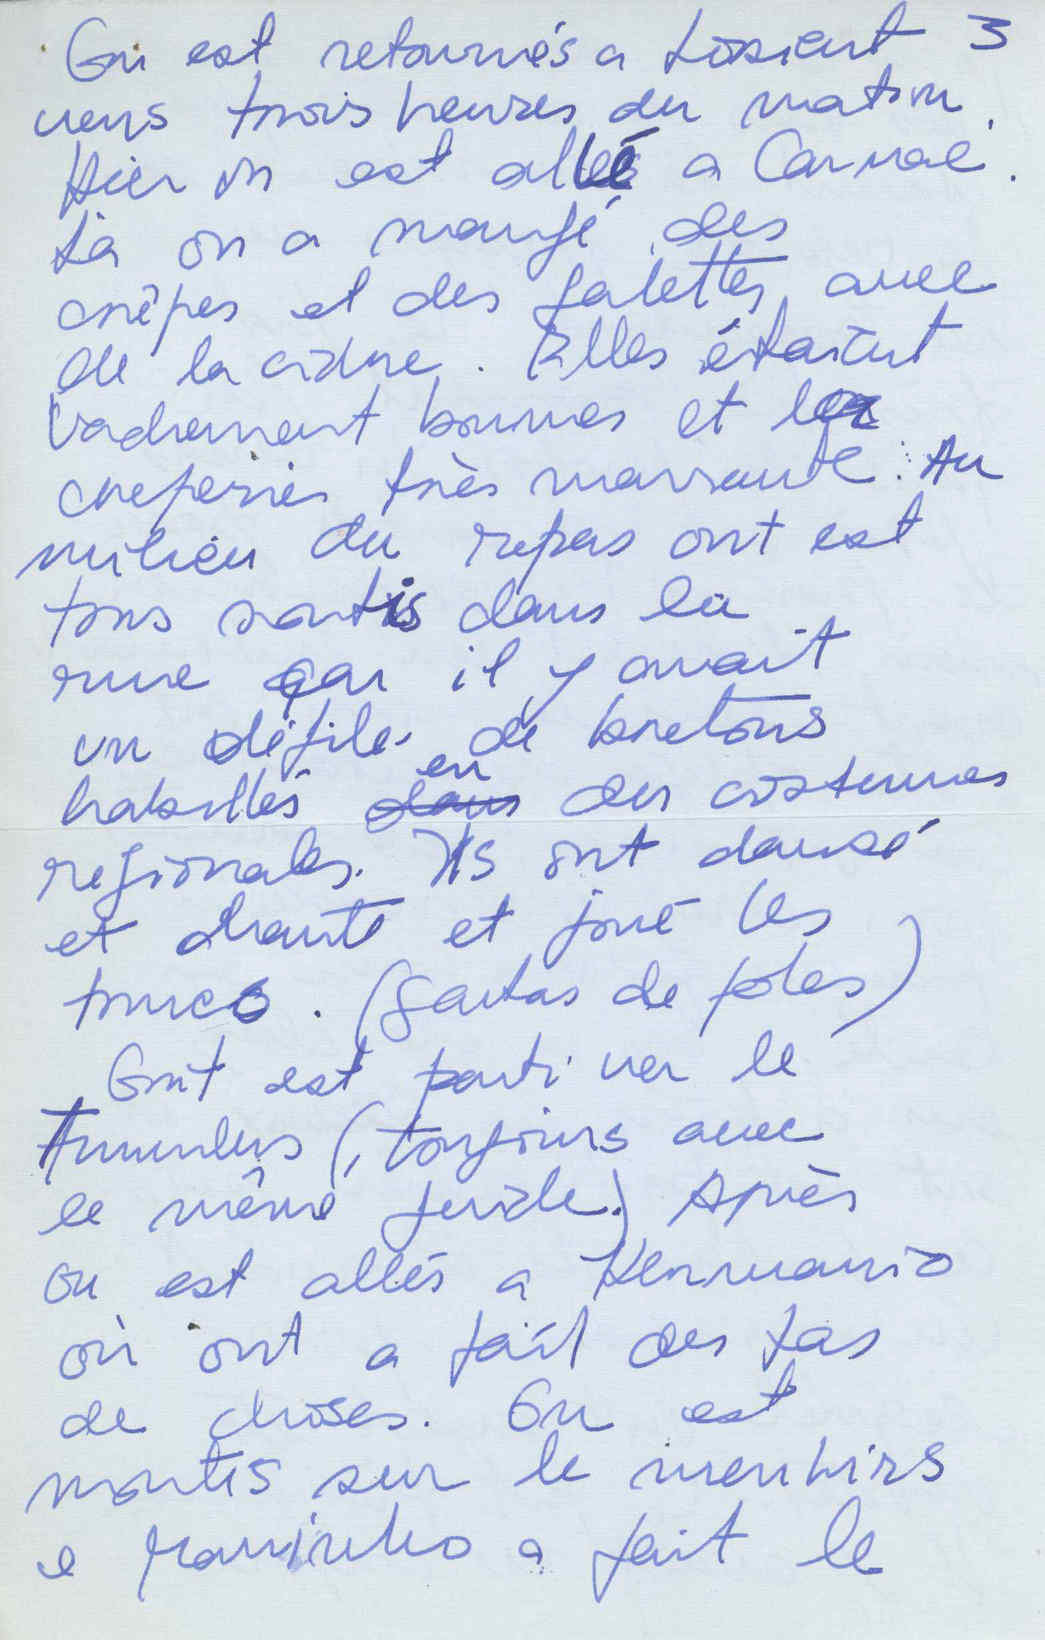 On est retournés a Losient 3
vers trois heures du matin.
Hier on est allé a Carnac.
Là on a mangé des
crêpes et des galettes avec
de la cidre. Elles étaient
vachement bonnes et la
creperies très marrante. Au
milieu du repas ont est
tous sortis dans la
rue car il y avait
un défile de bretons
habillés en dans des costumes
regionales. Ils ont dansé
et chanté et joué les
trucs. (gaitas de foles)
Ont est parti ver le
Tumulus (, toujours avec
le même guide.) Après
on est allés a Kermario
où ont a fait des tas
de choses. On est
montés sur le menhirs
e a fait le